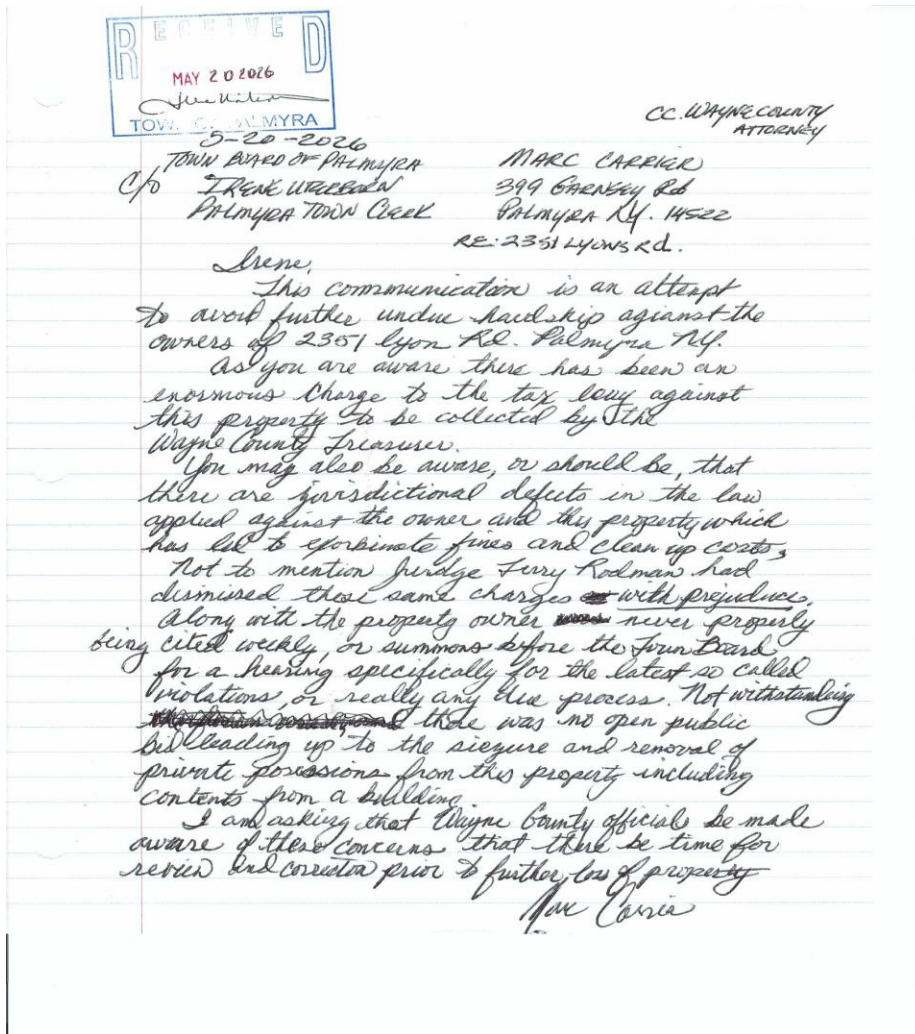 RECEIVED
MAY 20 2026
TOWN OF PALMYRA
CC. WAYNE COUNTY
ATTORNEY
5-20-2026
TOWN BOARD OF PALMYRA
C/O IRENE
PALMYRA TOWN CLERK
MARC CARRIER
399 GARNSEY Rd
PALMYRA NY. 14522
RE: 2351 LYONS Rd.
Irene,
This communication is an attempt
to avoid further undue hardship against the
owners of 2351 lyon Rd. Palmyra NY.
As you are aware there has been an
enormous charge to the tax levy against
this property to be collected by the
Wayne County Treasuser.
You may also be aware, or should be, that
there are jurisdictional defects in the law
applied against the owner and this property which
has led to exorbinate fines and clean up costs,
Not to mention Jurdge Terry Rodman had
dismissed these same charges with prejuduce.
Along with the property owner never properly
being cited weekly, or summons before the Town Board
for a hearing specifically for the latest so called
violations, or really any due process. Not withstanding
there was no open public
bid leading up to the siezure and removal of
private possessions from this property including
contents from a building.
I am asking that Wayne County official be made
aware of these concerns that there be time for
review and correction prior to further loss of property
Marc Carrier